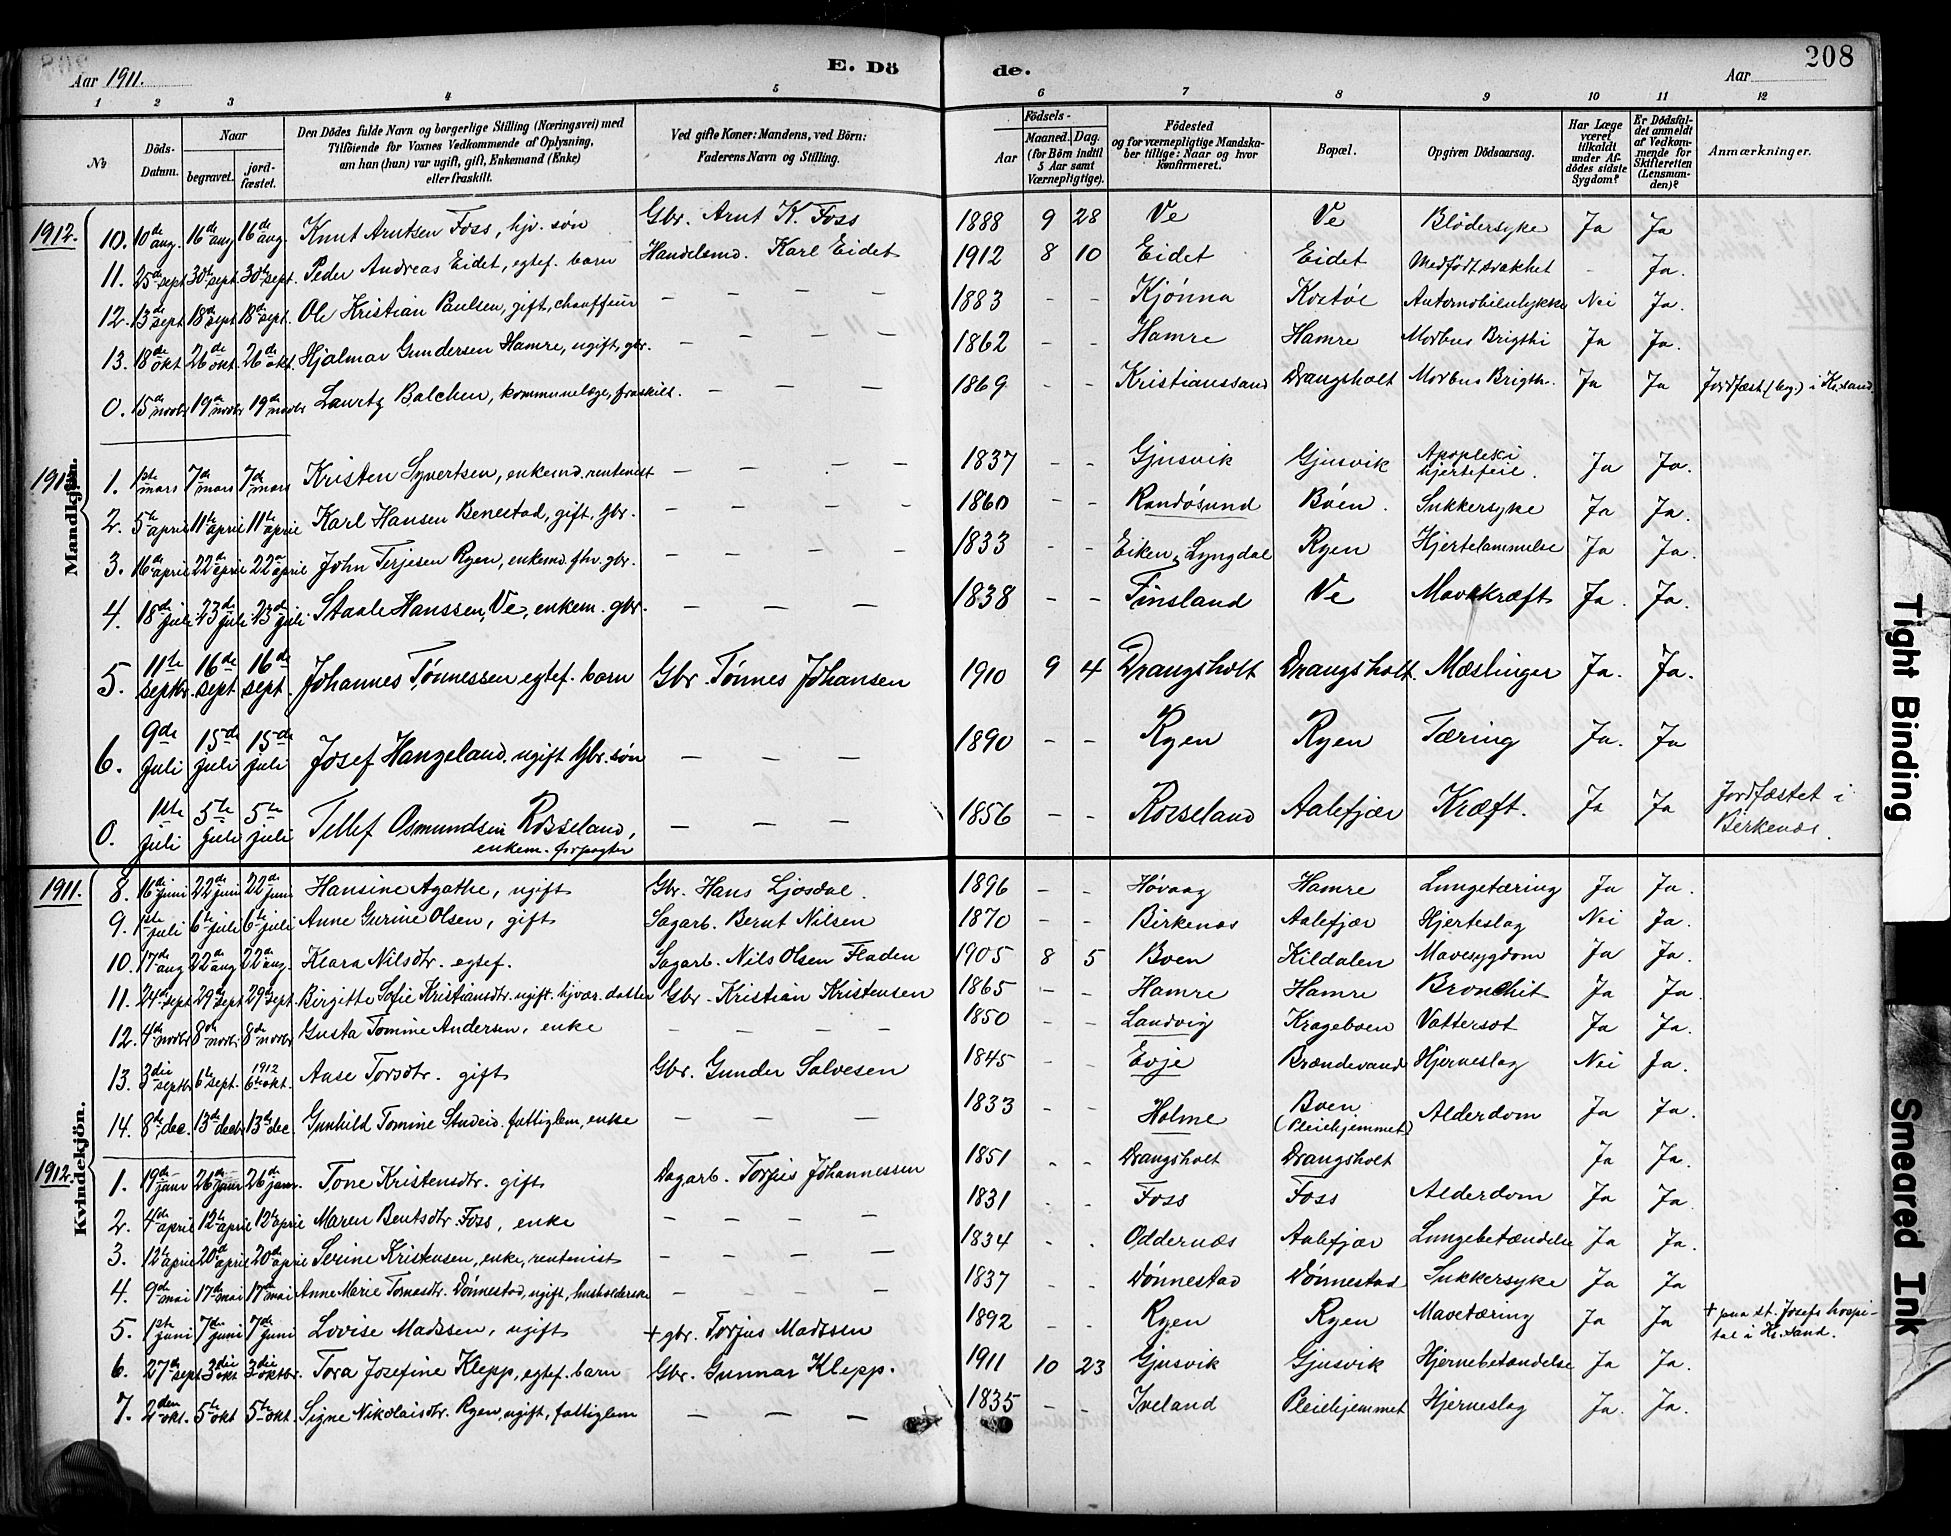 208
Aar 1911. E. Dö
de. Aar
1 2 3 4 5 6 7 8 9 10 11 12
No
Döds-Datum.
Naar
begravet. jord-fæstet.
Den Dödes fulde Navn og borgerlige Stilling (Næringsvei) med
Tilföiende for Voxnes Vedkommende af Oplysning,
om han (hun) var ugift, gift, Enkemand (Enke)
eller fraskilt.
Ved gifte Koner: Mandens, ved Börn:
Faderens Navn og Stilling.
Födsels-
Aar Maaned. Dag.
(for Börn indtil
5 Aar samt
Værnepligtige).
Födested
og for værnepligtige Mandska-
ber tillige: Naar og hvor
konfirmeret.
Bopæl.
Opgiven Dödsaarsag.
Har Læge
været
tilkaldt
under Af-
dödes sidste
Sygdom?
Er Dödsfal-
det anmeldt
af Vedkom-
mende for
Skifteretten
(Lensman-
den)?
Anmærkninger.
Mandkjön.
1912. 10. 10de aug. 16de aug 16de aug. Knut Arntsen Foss, hjv. søn Gbr. Arnt K. Foss 1888 9 28 Ve Ve Blödersyke Ja Ja
11. 25de sept 30te sept 30te sept. Peder Andreas Eidet, egtef. barn Handelsmd. Karl Eidet 1912 8 10 Eidet Eidet Medfödt svakhet - Ja.
12. 13de sept 18de sept 18de sept. Ole Kristian Paulsen, gift, chauffeur — — — 1883 - - Kjønna Kostøl Automobilulykke Nei Ja.
13. 18de okt 26de okt. 26de okt. Hjalmar Gundersen Hamre, ugift, gbr. — — — 1862 - - Hamre Hamre Morbus Brigthi Ja Ja.
0. 15de novbr 19de novbr 19de novbr Lauritz Balchen, kommunelæge, fraskilt. — — — 1869 - - Kristianssand Drangsholt Morbus Brigth. Ja Ja Jordfæst (beg.) i Kr.sand.
1. 1ste mars 7de mars 7de mars Kristen Syvertsen, enkemd. rentenist — — — 1837 - - Gjusvik Gjusvik Apopleksi hjertefeil. Ja Ja.
2. 5te april 11te april 11te april Karl Hansen Benestad, gift, gbr. — — — 1860 - - Randøsund Bóen. Sukkersyke Ja Ja.
3. 16de april 22de april 22de april John Terjesen Ryen, enkemd. fhv. gbr. — — — 1833 - - Eiken, Lyngdal Ryen Hjertelammelse Ja Ja.
4. 18de juli 23de juli 23de juli Staale Hanssen, Ve, enkem. gbr. — — — 1838 - - Finsland Ve Mavekræft Ja. Ja.
5. 11te septbr 16de sept 16de sept. Johannes Tønnessen egtef. barn Gbr. Tønnes Johansen 1910 9 4 Drangsholt Drangsholt. Mæslinger Ja. Ja.
6. 9de Juli 15de Juli 15de Juli Josef Hangeland. ugift Gbr. søn — — — 1890 - - Ryen Ryen Tæring Ja. Ja
0. 1ste Juli 5te Juli 5te Juli Tellef Osmundsen Rosseland, enkem. forpagter — — — 1856 - - Rosseland Aalefjær Kræft. Ja Ja Jordfæstet i Birkenæs.
Kvindekjön.
1911. 8. 16de juni 22de juni 22de juni Hansine Agathe, ugift Gbr. Hans Ljosdal. 1896 - - Høvaag Hamre Lungetæring Ja Ja.
9. 1ste juli 6te juli 6te juli Anne Gurine Olsen, gift Sagarb. Bernt Nilsen 1870 - - Birkenæs Aalefjær Hjerteslag Nei Ja.
10. 17de aug 22de aug 22de aug. Klara Nilsdtr. egtef. Sagarb. Nils Olsen Fladen 1905 8 5 Boen Kildalen Mavesygdom Ja Ja.
11. 24de sept 29de sept 29de sept. Birgitte Sofie Kristiansdtr. ugift. hjvær. datter Gbr. Kristian Kristensen 1865 - - Hamre Hamre Bronchit Ja Ja.
12. 4de novbr 8de novbr 8de novbr Gusta Tomine Andersen, enke — — — — 1850 - - Landvig Krageboen Vattersot Ja Ja.
13. 3die septbr 6te sept. 1912 6te okt. Aase Torsdtr. gift Gbr. Gunder Salvesen 1845 - - Evje Brændevand Hjerneslag Nei Ja.
14. 8de dec. 13de decbr 13de dec. Gunhild Tomine Studeid. fattiglem, enke — — — — 1833 - - Holme Boen (Pleiehjemmet) Alderdom Ja Ja.
1912. 1. 19de janr 26de janr 26de janr. Tone Kristensdtr. gift Dagarb. Torjus Johannessen 1851 - - Drangsholt Drangsholt Ja Ja.
2. 4de april 12te april 12te april Maren Bentsdtr. Foss, enke — — — — 1831 - - Foss Foss Alderdom Ja Ja.
3. 12te april 20de april 20de april Serine Kristensen, enke, rentenist — — — — 1834 - - Oddernæs Aalefjær Lungebetændelse Ja Ja.
4. 9de mai 17de mai 17de mai Anne Marie Tomasdtr. Dønnestad, ugift, husholderske — — — — 1837 - - Dønnestad Dønnestad Sukkersyke Ja Ja
5. 1ste juni 7de juni 7de juni Lovise Madssen, ugift + gbr. Torjus Madssen 1892 - - Ryen Ryen Mavetæring Ja Ja + paa St. Josefs hospital i Kr.sand.
6. 27de sept 3die okt 3die oktbr. Tora Josefine Klepp, egtef. barn Gbr. Gunnar Klepp. 1911 10 23 Gjusvik Gjusvik Hjernebetændelse Ja Ja.
7. 2den okt. 5te okt 5te okt. Signe Nikolaisdtr. Ryen, ugift, fattiglem — — — 1835 - - Iveland Pleiehjemmet Hjerneslag Ja. Ja.
Tight Binding
Smeared Ink